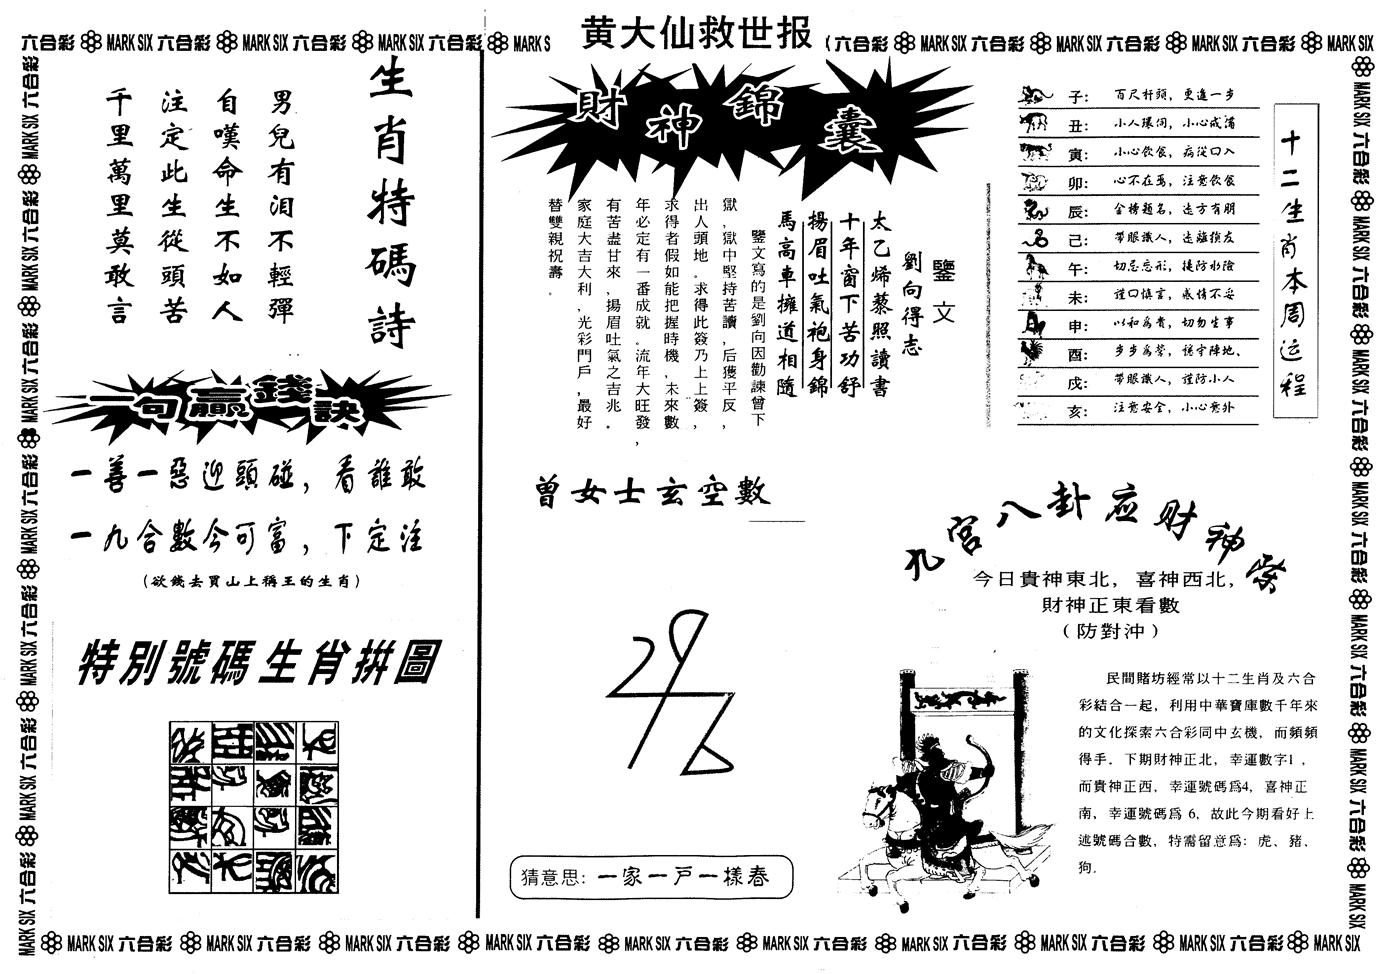 黄大仙救世报
六合彩 MARK SIX 六合彩 MARK SIX 六合彩 MARK SIX 六合彩 MARK S
六合彩 MARK SIX 六合彩 MARK SIX 六合彩 MARK SIX 六合彩 MARK SIX
生肖特碼詩
男兒有泪不輕彈
自嘆命生不如人
注定此生從頭苦
千里萬里莫敢言
一句贏錢訣
一善一惡迎頭碰，看誰敢
一九合數今可富，下定注
(欲錢去買山上稱王的生肖)
特别號碼生肖拼圖
財神錦囊
鑒文
劉向得志
太乙烯藜照讀書
十年窗下苦功舒
揚眉吐氣袍身錦
馬高車擁道相隨
鑒文寫的是劉向因勸諫曾下
獄,獄中堅持苦讀,后獲平反,
出人頭地。求得此簽乃上上簽,
求得者假如能把握時機,未來數
年必定有一番成就。流年大旺發,
有苦盡甘來,揚眉吐氣之吉兆。
家庭大吉大利,光彩門戶,最好
替雙親祝壽。
十二生肖本周运程
子: 百尺杆頭，更進一步
丑: 小人環伺，小心戒滿
寅: 小心飲食，病從口入
卯: 心不在焉，注意飲食
辰: 金榜題名，远方有朋
己: 帶眼識人，远離損友
午: 切忌忘形，提防水險
未: 謹口慎言，感情不妥
申: 以和為貴，切勿生事
酉: 步步為營，謹守陣地、
戌: 帶眼識人，謹防小人
亥: 注意安全，小心意外
曾女士玄空數
猜意思: 一家一戸一樣春
九宮八卦应财神榮
今日貴神東北，喜神西北，
財神正東看數
（防對沖）
民間賭坊經常以十二生肖及六合
彩結合一起，利用中華寶庫數千年來
的文化探索六合彩同中玄機，而頻頻
得手．下期財神正北，幸運數字1，
而貴神正西，幸運號碼爲4，喜神正
南，幸運號碼爲 6，故此今期看好上
述號碼合數，特需留意爲：虎、豬、
狗．
MARK SIX 六合彩 MARK SIX 六合彩 MARK SIX 六合彩 MARK SIX 六合彩 MARK SIX 六合彩 MARK SIX 六合彩 MARK SIX 六合彩 MARK SIX 六合彩 MARK SIX 六合彩 MARK SIX